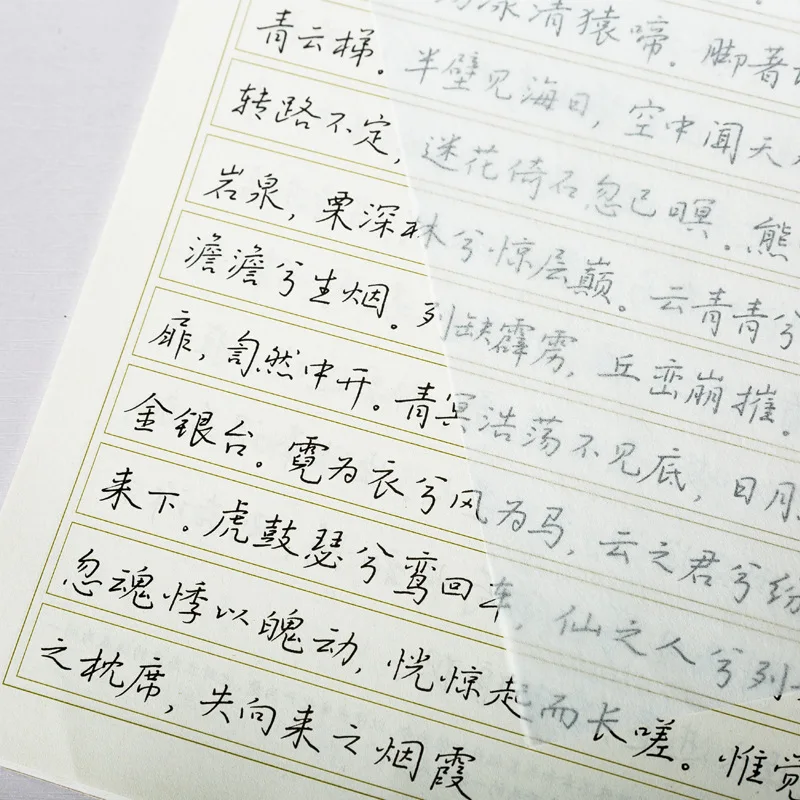 漾清猿啼。脚著
青云梯。半壁见海日，空中闻天
转路不定，迷花倚石忽已暝。熊
岩泉，栗深林兮惊层巅。云青青兮
澹澹兮生烟。列缺霹雳，丘峦崩摧。
扉，訇然中开。青冥浩荡不见底，日月
金银台。霓为衣兮风为马，云之君兮纷
来下。虎鼓瑟兮鸾回车，仙之人兮列
忽魂悸以魄动，恍惊起而长嗟。惟觉
之枕席，失向来之烟霞